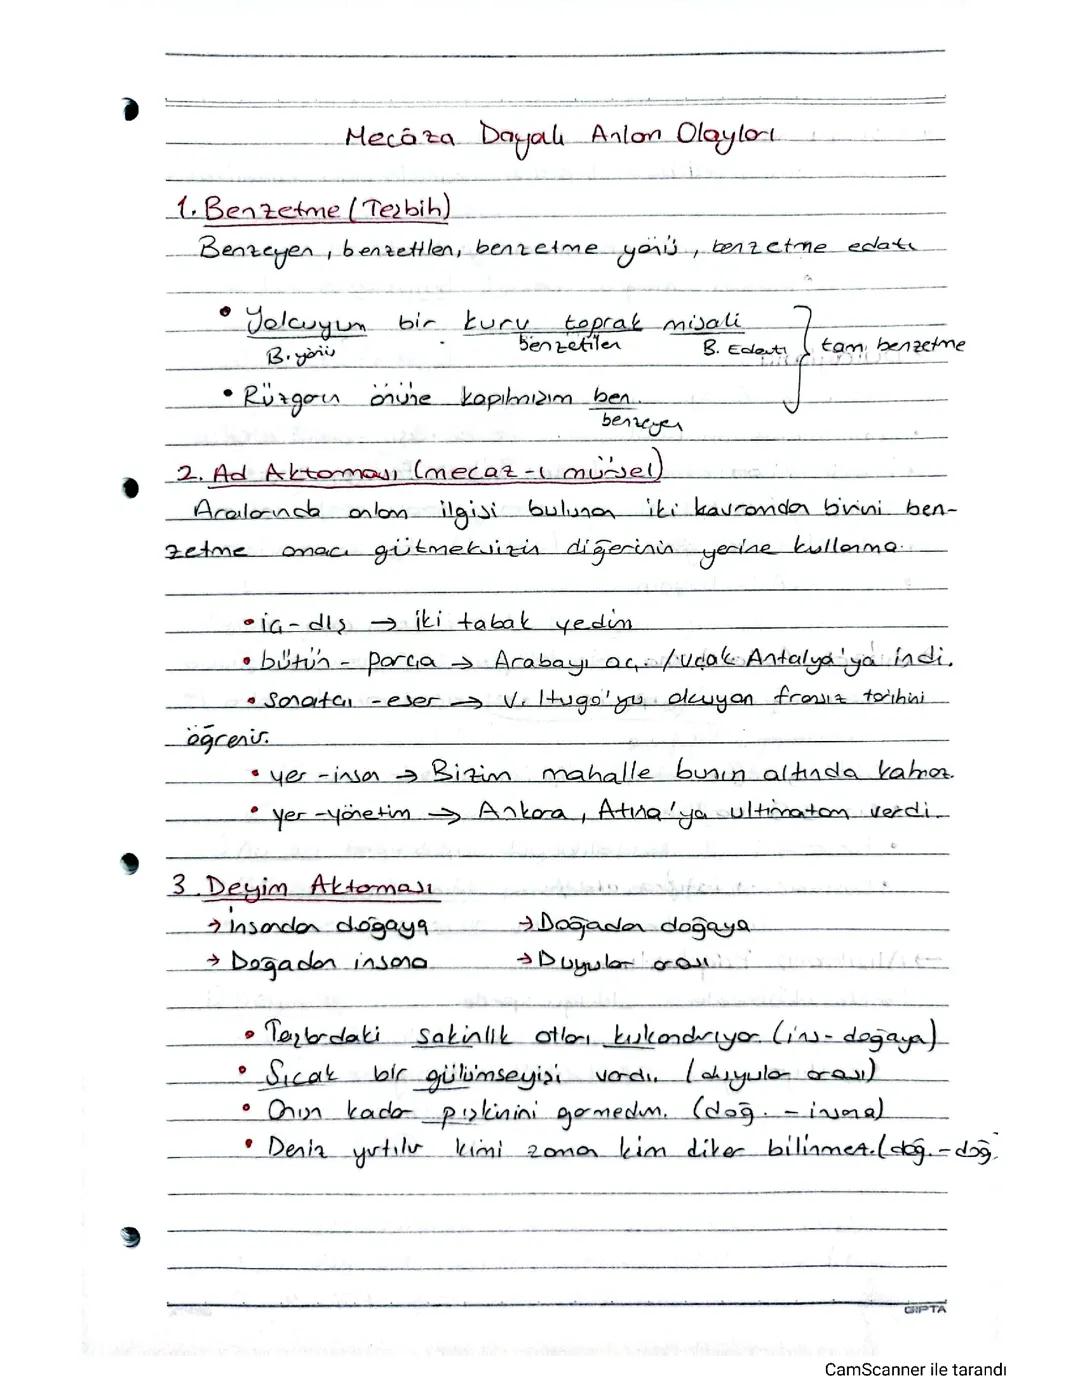 Mecâza Dayalı Anlam Olayları
1. Benzetme (Teşbih)
Benzeyen, benzetilen, benzetme yönü, benzetme edatı
• Yolcuyum bir kuru toprak misali
B. yönü benzetilen B. Edatı tam benzetme
• Rüzgarın önüne kapılmışım ben
benzeyen
2. Ad Aktarması (mecaz-ı mürsel)
Aralarında anlam ilgisi bulunan iki kavramdan birini ben-
zetme amacı gütmeksizin diğerinin yerine kullanma.
• iç-dış → iki tabak yedim
• bütün - parça → Arabayı aç. / Uçak Antalya'ya indi.
• Sanatçı - eser → V. Hugo'yu okuyan fransız tarihini
öğrenir.
• yer - insan → Bizim mahalle bunun altında kalmaz.
• yer - yönetim → Ankara, Atina'ya ultimatom verdi.
3 Deyim Aktarması
→ insandan doğaya → Doğadan doğaya
→ Doğadan insana → Duyular arası
• Tarladaki sakinlik otları kıskandırıyor (ins - doğaya)
• Sıcak bir gülümseyişi vardı. (duyular arası)
• Onun kadar pişkinini görmedim. (doğ. - insana)
• Deniz yırtılır kimi zaman kim diker bilinmez. (doğ. - doğ.
GIPTA
CamScanner ile tarandı